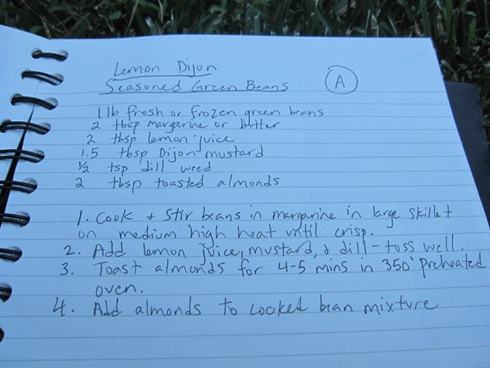 Lemon Dijon
Seasoned Green Beans
A
1 lb fresh or frozen green beans
2 tbsp margarine or butter
2 tbsp lemon juice
1.5 tbsp Dijon mustard
1/2 tsp dill weed
2 tbsp toasted almonds
1. Cook + Stir beans in margarine in large skillet
on medium high heat until crisp.
2. Add lemon juice, mustard, + dill - toss well.
3. Toast almonds for 4-5 mins in 350° preheated
oven.
4. Add almonds to cooked bean mixture